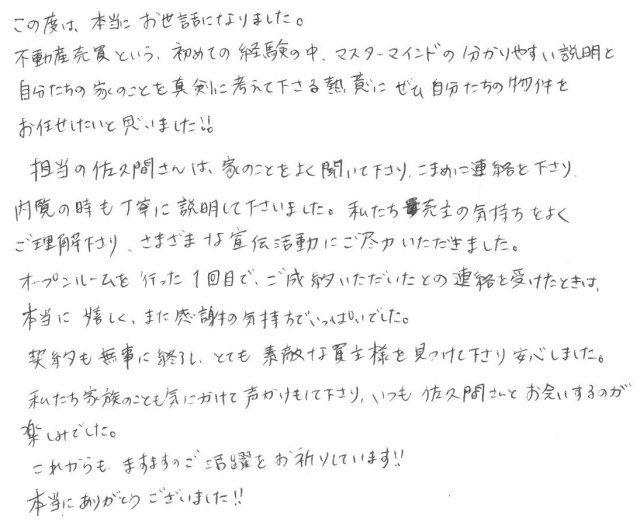 この度は、本当に お世話になりました。
不動産売買という、初めての経験の中、マスターマインドの分かりやすい説明と
自分たちの家のことを真剣に考えて下さる熱意に ぜひ自分たちの物件を
お任せしたいと思いました!!
担当の佐久間さんは、家のことをよく聞いて下さり、こまめに連絡を下さり、
内覧の時も丁寧に説明して下さいました。私たち売主の気持ちをよく
ご理解下さり、さまざまな宣伝活動にご尽力いただきました。
オープンルームを行った1回目で、ご成約いただいたとの連絡を受けたときは、
本当に嬉しく、また感謝の気持ちでいっぱいでした。
契約も無事に終了し、とても素敵な買主様を見つけて下さり安心しました。
私たち家族のことも気にかけて声かけもして下さり、いつも佐久間さんとお会いするのが
楽しみでした。
これからも ますますのご活躍をお祈りしています!!
本当にありがとうございました!!